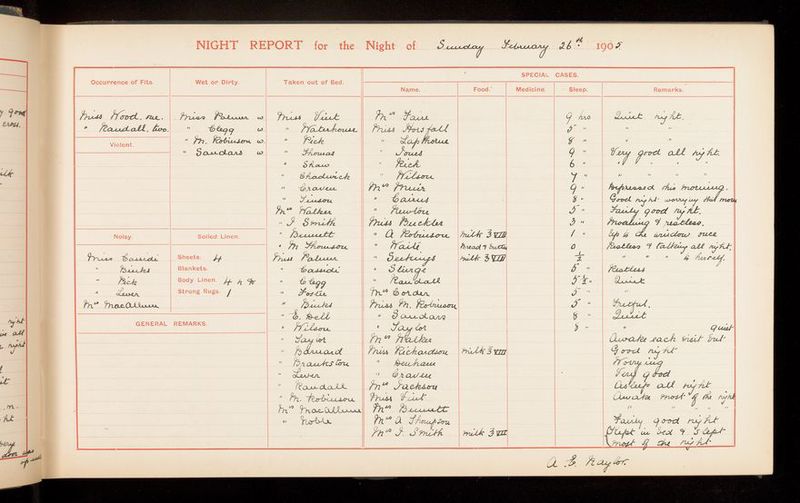 NIGHT REPORT for the Night of Sunday February 26th 1905
SPECIAL CASES.
Occurrence of Fits.
Wet or Dirty.
Taken out of Bed.
Name.
Food.
Medicine.
Sleep.
Remarks.
Miss Wood. one.
" Randall. two.
Violent.
Noisy.
Miss Cassidi
" Binks
" Pick
" Lewer
Mrs MacCallum
Miss Palmer w
" Clegg w
" M. Robinson w
" Sandars w
Soiled Linen.
Sheets. 4
Blankets.
Body Linen. 4
Strong Rugs. 1
GENERAL REMARKS.
Miss Vint
" Waterhouse
" Pick
" Thomas
" Shaw
" Chadwick
" Craven
" Vinson
Mrs Walker
" J. Smith
" Bennett
" M Thomson
Miss Palmer
" Cassidi
" Clegg
" Foster
" Binks
" E. Bell
" Wilson
" Taylor
" Barnard
" Brankston
" Lewer
" Randall
" M. Robinson
Mrs MacCallum
" Noble
Mrs Faire 9 hrs Quiet night.
Miss Horsfall 5 " " "
" Lapthorne 8 " " "
" Jones 9 " Very good all night.
" Pick 6 " " "
" Wilson 7 " " "
Mrs Muir 9 " Depressed this morning.
" Cairns 8 " Good night worrying this morn
" Newton 5 " Fairly good night.
Miss Buckler 3 " Moaning & restless.
" A Robinson milk 3 VIII 1 " Up to the window once
" Waite Bread & butter 0 Restless & talking all night.
" Seekings milk 3 VIII ½ " " " to herself.
" Sturge 6 " Restless
" Randall 5½ " Quiet
Mrs Corder 5 " "
Miss M. Robinson 5 " Fretful.
" Sandars 8 " Quiet
" Taylor 8 " " quiet
Mrs Walker Awake each visit but
Miss Richardson milk 3 VIII Good night
" Benham Worrying
" Craven Very good
Mrs Jackson Asleep all night
Miss Vint Awake most of the night
Mrs Bennett " " "
Mrs A Thompson Fairly good night
Mrs J. Smith milk 3 VII Slept in bed & slept
most of the night
A. E. Naylor.